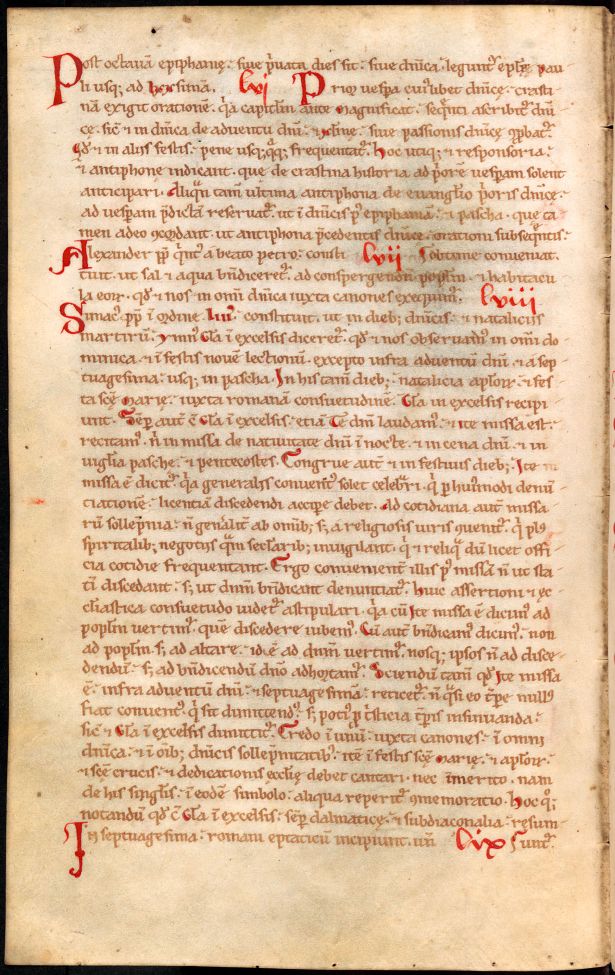 Post octauā epiphanię· siue p̱uata dies sit· siue dñica· legunt᷑ epłę pau-
li usq; ad lxx simā. lvi Prior uespa cuiꝰlibet dñicę· crasti-
nā exigit oratione᷑· q̇a capitłm ante magnificat· seq̄nti ascribit᷑ dñi-
cę· sic̄ & in dñica de aduentu dñi· & xl me· siue passionis dñicę ꝓbat᷑·
Qđ & in aliis festis· pene usq;q̇q; frequentat᷑· Hoc utiq; & responsoria·
& antiphonę indicant· que de crastina historia ad p̱orē uespam solent
anticipari· Aliq̄n tam̄ ultima antiphona de euangłio p̱oris dñicę·
ad uesp̱am p̱dictā reseruat᷑· ut ī dñicis p᷑ epiphaniā· & pascha· que ta-
men adeo ꝯcordant· ut antiphona p̱cedentis dñicę· orationi subseq̄ntis·
Alexander pp̄ q̇ntꝰ a beato petro· consti- lvii obtime conueniat·
tuit· ut sal & aqua bñdiceret᷑· ad conspergendū poplm̄· & habitacu-
la eoꝝ· qđ & nos in omī dñica iuxta canones exequimꝰ· lviii
Simacꝰ pp̄ ī ordine liiiꝰ constituit· ut in dieb; dñicis· & nataliciis
martirū· ymnꝰ Gła ī excelsis diceret᷑· qđ & nos obseruamꝰ in omī do-
minica· & ī festis nouē lectionū· excepto infra aduentū dñi· & a sep-
tuagesima· usq; in pascha· In his tam̄ dieb;· natalicia apłoꝝ· & fes-
ta scę Marię· iuxta romanā consuetudinē· Gła in excelsis recipi-
unt· Semp̱ aut̄ cū Gła ī excelsis· etiā Te dm̄ laudamꝰ· & ite missa est·
recitamꝰ· n̄ in missa de natiuitate dñi ī nocte· & in cena dñi· & in
uigłia paschę· & pentecostes· Congrue aut̄ & in festiuis dieb;· Ite
missa ē dicit᷑· q̇a generalis conuentꝰ solet celebrari· q̇ p̱ huiꝰmodi denun-
ciationē· licentiā discedendi accip̱e debet· Ad cotidiana aut̄ missa-
rū sollēpnia· n̄ gen̄alit᷑ ab omībꝰ· s; a religiosis uiris ꝯuenit᷑· q̇ plꝰ
spiritalib; negotiis q̇m sec̄larib; inuigilant· q̇ & reliq̇ dū licet offi-
cia cotidie frequentant· Ergo conuenient᷑ illis p᷑ missā n̄ ut sta-
tī discedant· s; ut dñm bñdicant denuntiat᷑· huic assertioni & ec-
clīastica consuetudo uidet᷑ astipulari· q̇a cū Ite missa ē dicimꝰ ad
poplm̄ uertimꝰ· quē discedere iubemꝰ· Cū aut̄ bñdicamꝰ dicimꝰ· non
ad poplm̄ s; ad altare· id ē ad dñm uertimꝰ· nosq; ipsos n̄ ad disce-
dendū· s; ad bñdicendū dño adhortamꝰ· Sciendū tam̄ qđ Ite missa
ē· infra aduentū dñi· & septuagesimā· reticet᷑· n̄ q̇si eo tp̱e nullꝰ
fiat conuentꝰ· q̇ sit dimittendꝰ· s; potiꝰ p̱ tristicia tp̱is insinuanda·
sic̄ & Gła ī excelsis dimittit᷑· Credo ī unū· iuxta canones· ī omni
dñica· & ī oīb; dñicis sollēpnitatibꝰ· itē ī festis scę Marię· & apłoꝝ·
& scę crucis· & dedicationis ęcclię debet cantari· nec īmerito· nam
de his singłis· ī eodē simbolo· aliqua reperit᷑ ꝯmemoratio· Hoc q;
notandū qđ cū Gła ī excelsis· semp̱ dalmaticę· & subdiaconalia· resum-
In septuagesima· romani eptaticū incipiunt· un̄ lix sunt᷑·